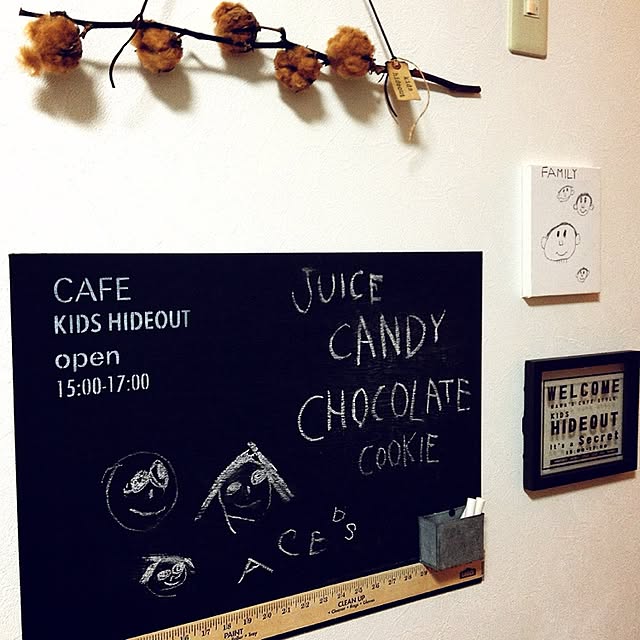 kids
hideout
FAMILY
CAFE
KIDS HIDEOUT
open
15:00-17:00
JUICE
CANDY
CHOCOLATE
COOKIE
A C E B's
WELCOME
KIDS
HIDEOUT
It's a Secret
CLEAN UP
PAINT